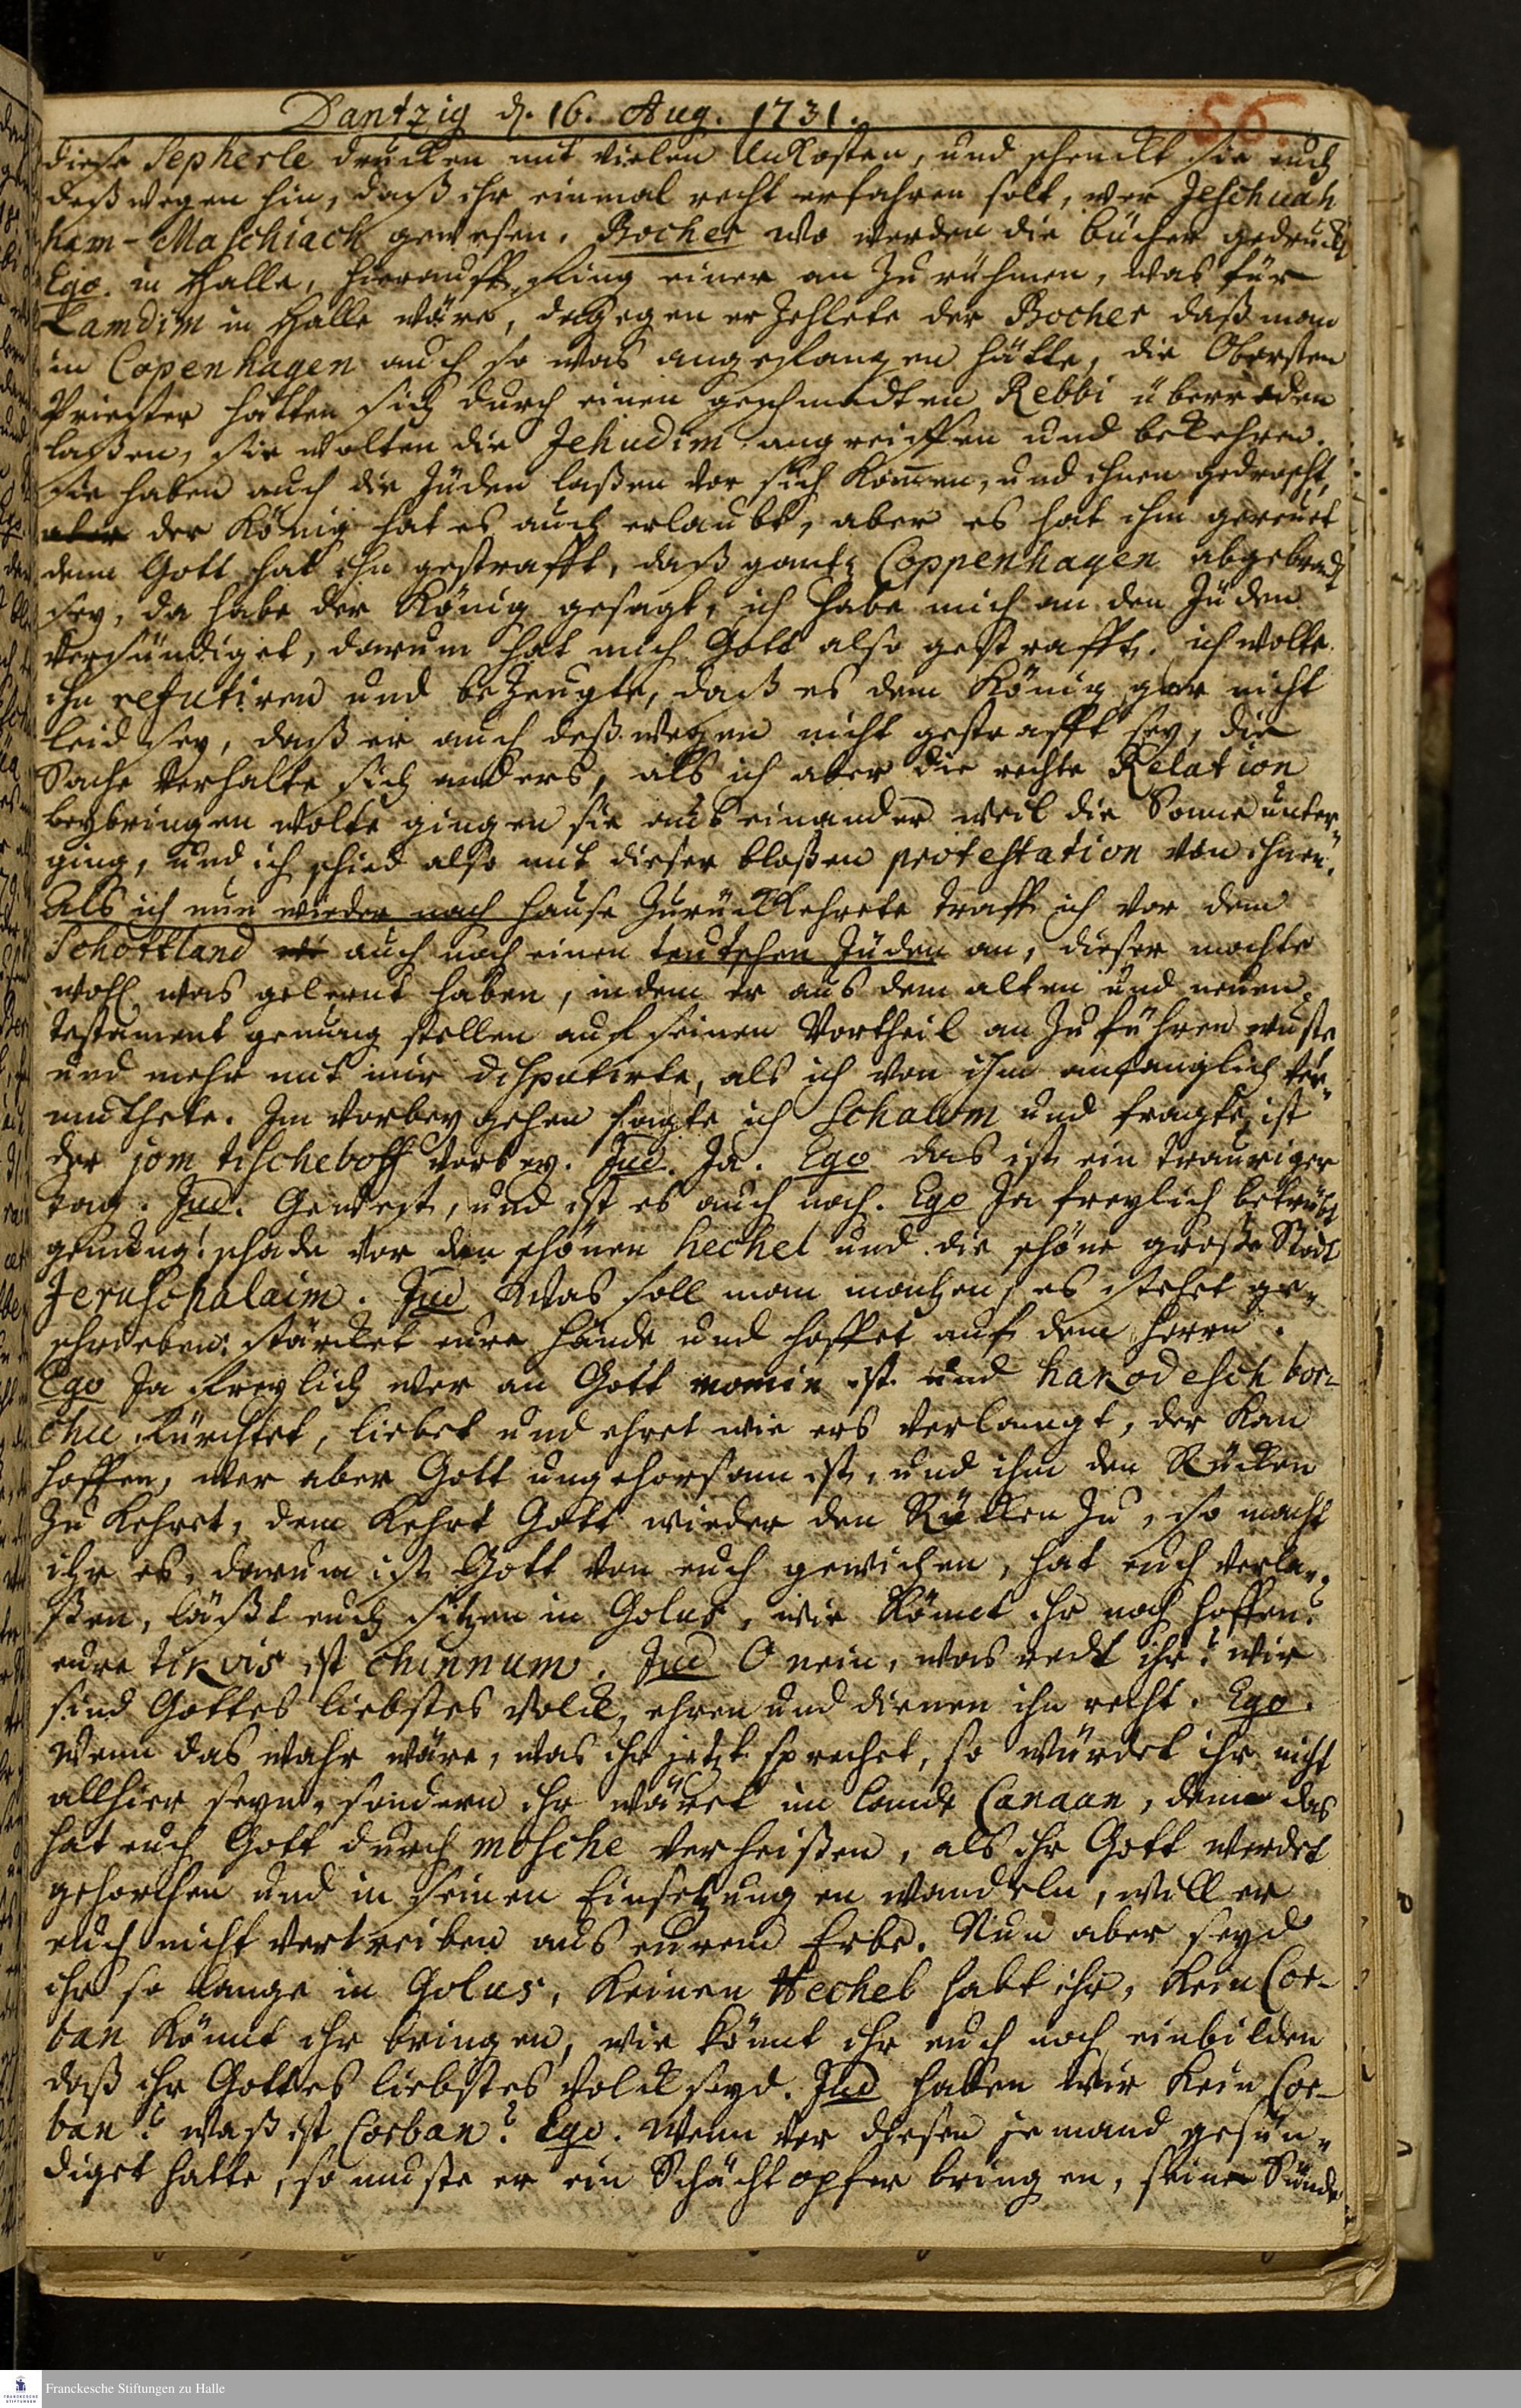 Dantzig d. 16. Aug. 1731.
56.
diese Sepherle drucken mit vielen Unkosten, und schenckt sie euch
deßwegen hin, daß ihr einmal recht erfahren solt, wer Jeschuah
ham-Maschiach gewesen. Bocher wo werden die bücher gedruckt
Ego. in Halle, hierauff fing einer an zu rühmen, was für
Lamdim in Halle wäre, dagegen erzehlete der Bocher daß man
in Copenhagen auch so was angefangen hätte, die Obersten
Priester hätten sich durch einen geschmadten Rebbi überreden
laßen, sie wolten die Jehudim angreiffen und bekehren.
sie haben auch die Jüden laßen vor sich kommen, und ihnen gedroht,
aber der König hat es auch erlaubt, aber es hat ihn gereuet
denn Gott hat ihn gestrafft, daß gantz Coppenhagen abgebrandt
sey, da habe der König gesagt, ich habe mich an den Jüden
versündiget, darum hat mich Gott also gestrafft. ich wolte
ihn refutiren und bezeugte, daß es dem König gar nicht
leid sey, daß er auch deßwegen nicht gestrafft sey, die
Sache verhalte sich anders, als ich aber die rechte Relation
beybringen wolte gingen sie aus einander weil die Sonne unter„
ging, und ich schied also mit dieser bloßen protestation von ihnen.
Als ich nun wieder nach Hause zurückkehrete traff ich vor dem
Schottland auch noch einen teutschen Jüden an, dieser mochte
wohl was gelernt haben, indem er aus dem alten und neuen
Testament genung stellen auf seinen Vortheil anzuführen wuste
und mehr mit mir disputirte, als ich von ihm anfänglich ver„
muthete. Im vorbey gehen sagte ich Schalom und fragte, ist
der jom tischeboff vorbey. Jud. Ja. Ego das ist ein trauriger
tag. Jud. Gewest, und ist es auch noch. Ego Ja freylich betrübt
genung! schade vor den schönen hechel und die schöne große Stadt
Jeruschalaim. Jud Was soll man machen, es stehet ge„
schrieben: stärcket eure hände und hoffet auf dem Herrn.
Ego Ja freylich wer an Gott momin ist und hakodesch bor-
chu fürchtet, liebet und ehret wie ers verlangt, der kan
hoffen, wer aber Gott ungehorsam ist, und ihm den Rücken
zu kehret, dem kehrt Gott wieder den Rükken zu, so macht
ihr es, darum ist Gott von euch gewichen, hat euch verla„
ßen, läßt euch sitzen in Golus, wie könnt ihr noch hoffen?
eure tikvis ist chinnum. Jud O nein, was redt ihr? wir
sind Gottes liebstes Volck, ehren und dienen ihn recht. Ego.
Wenn das wahr wäre, was ihr jetzt sprechet, so würdet ihr nicht
allhier seyn, sondern ihr wäret im Lande Canaan, denn das
hat euch Gott durch mosche verheißen, als ihr Gott werdet
gehorchen und in seinen Einsetzungen wandeln, will er
euch nicht vertreiben aus eurem Erbe. Nun aber seyd
ihr so lange in Golus, keinen Hechel habt ihr, kein Cor-
ban könnt ihr bringen, wie könnt ihr euch noch einbilden
daß ihr Gottes liebstes Volck seyd. Jud haben wir kein Cor-
ban? waß ist Corban? Ego. Wenn vor diesen jemand gesün„
diget hatte, so muste er ein Schächtopfer bringen, seine Sünde
Franckesche Stiftungen zu Halle